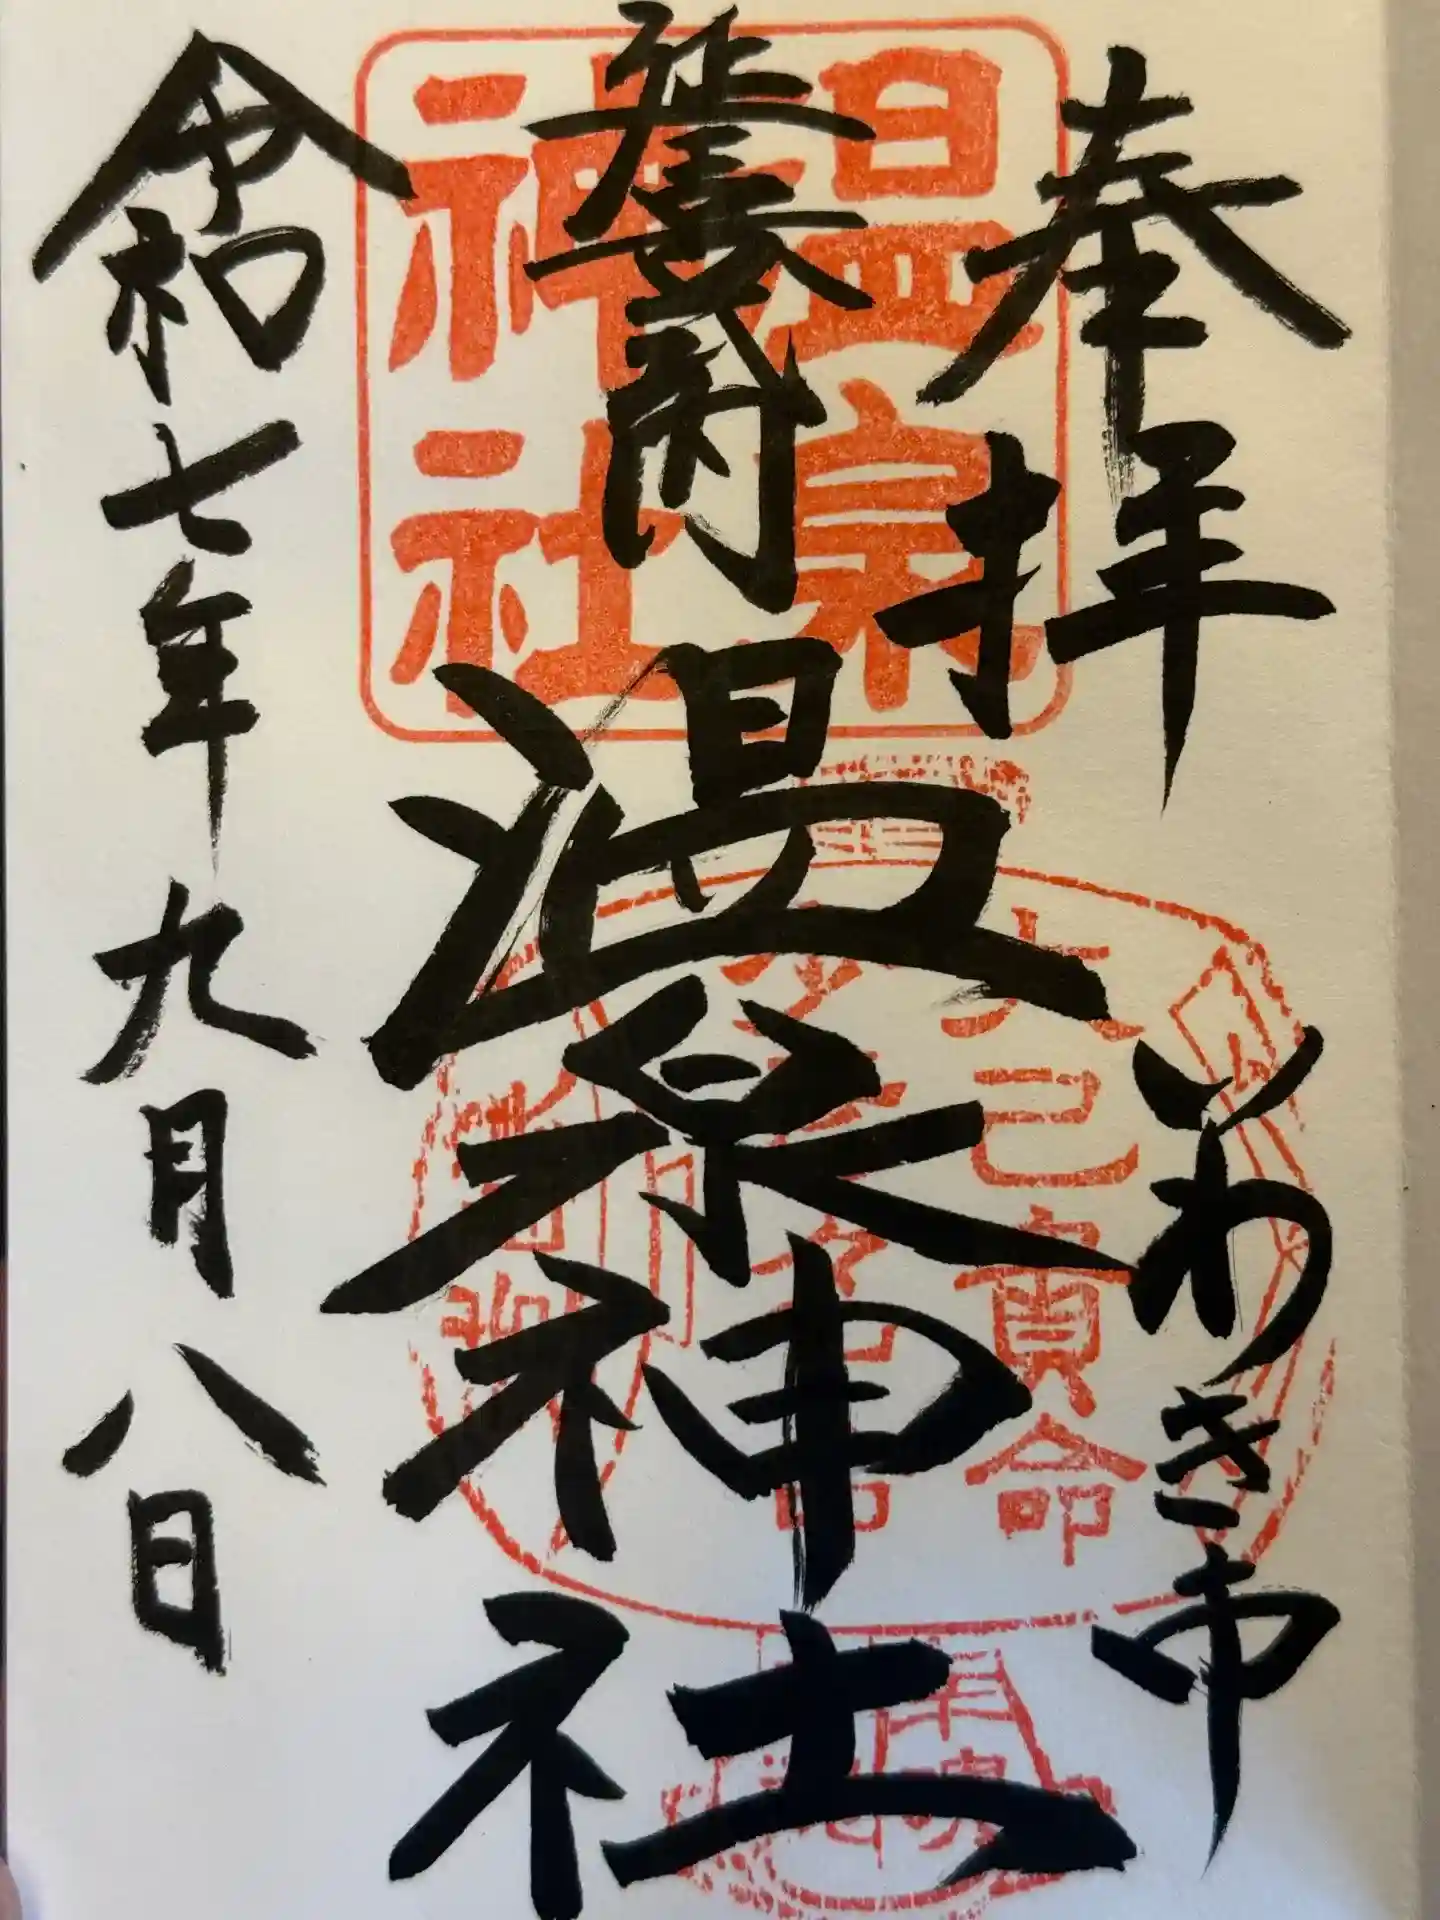 奉拝
いわき市
延喜式内
温泉神社
令和七年九月八日
温泉
神社
大己貴命